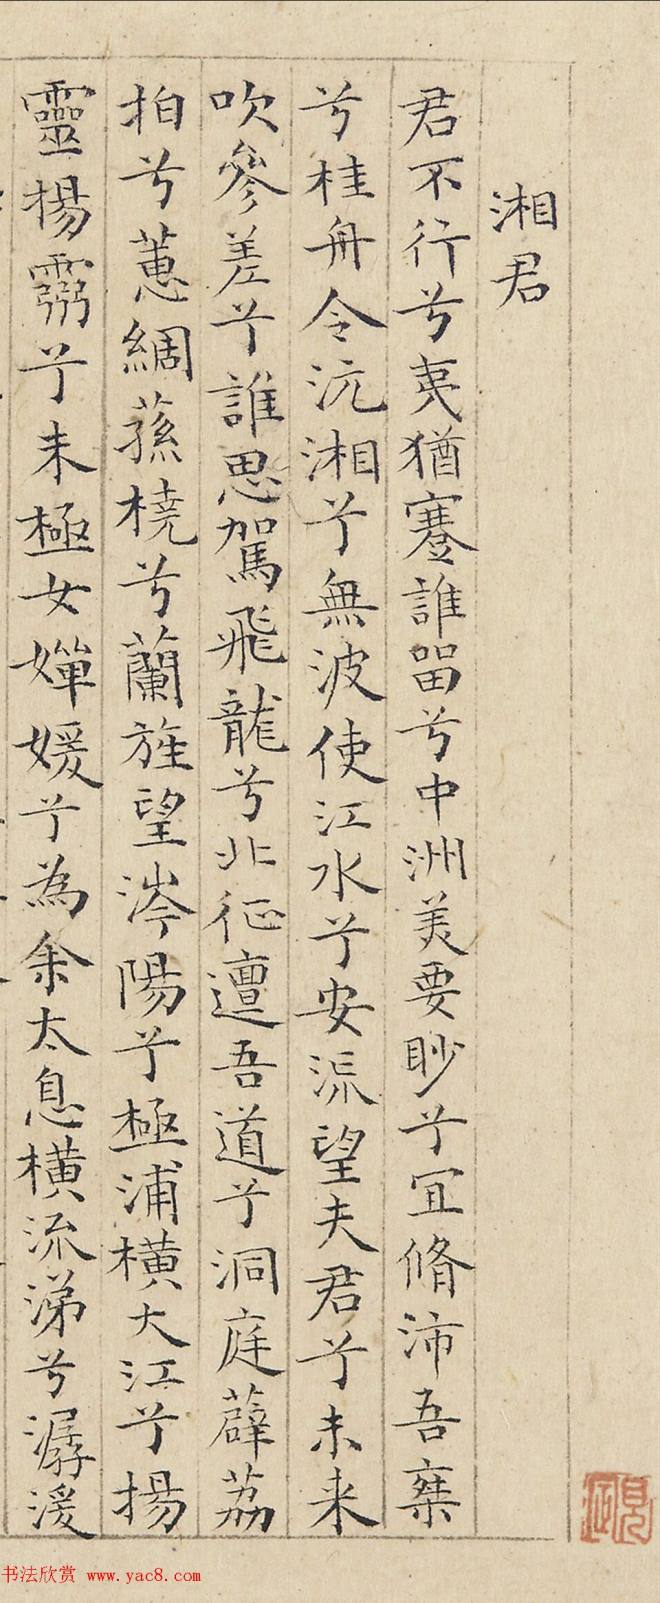 湘君
君不行兮夷猶蹇誰留兮中洲美要眇兮冝脩沛吾乘
兮桂舟令沅湘兮無波使江水兮安流望夫君兮未来
吹參差兮誰思駕飛龍兮北征邅吾道兮洞庭薜荔
拍兮蕙綢蓀橈兮蘭旌望涔陽兮極浦橫大江兮揚
靈揚靈兮未極女嬋媛兮為余太息橫流涕兮潺湲
书法欣赏 www.yac8.com